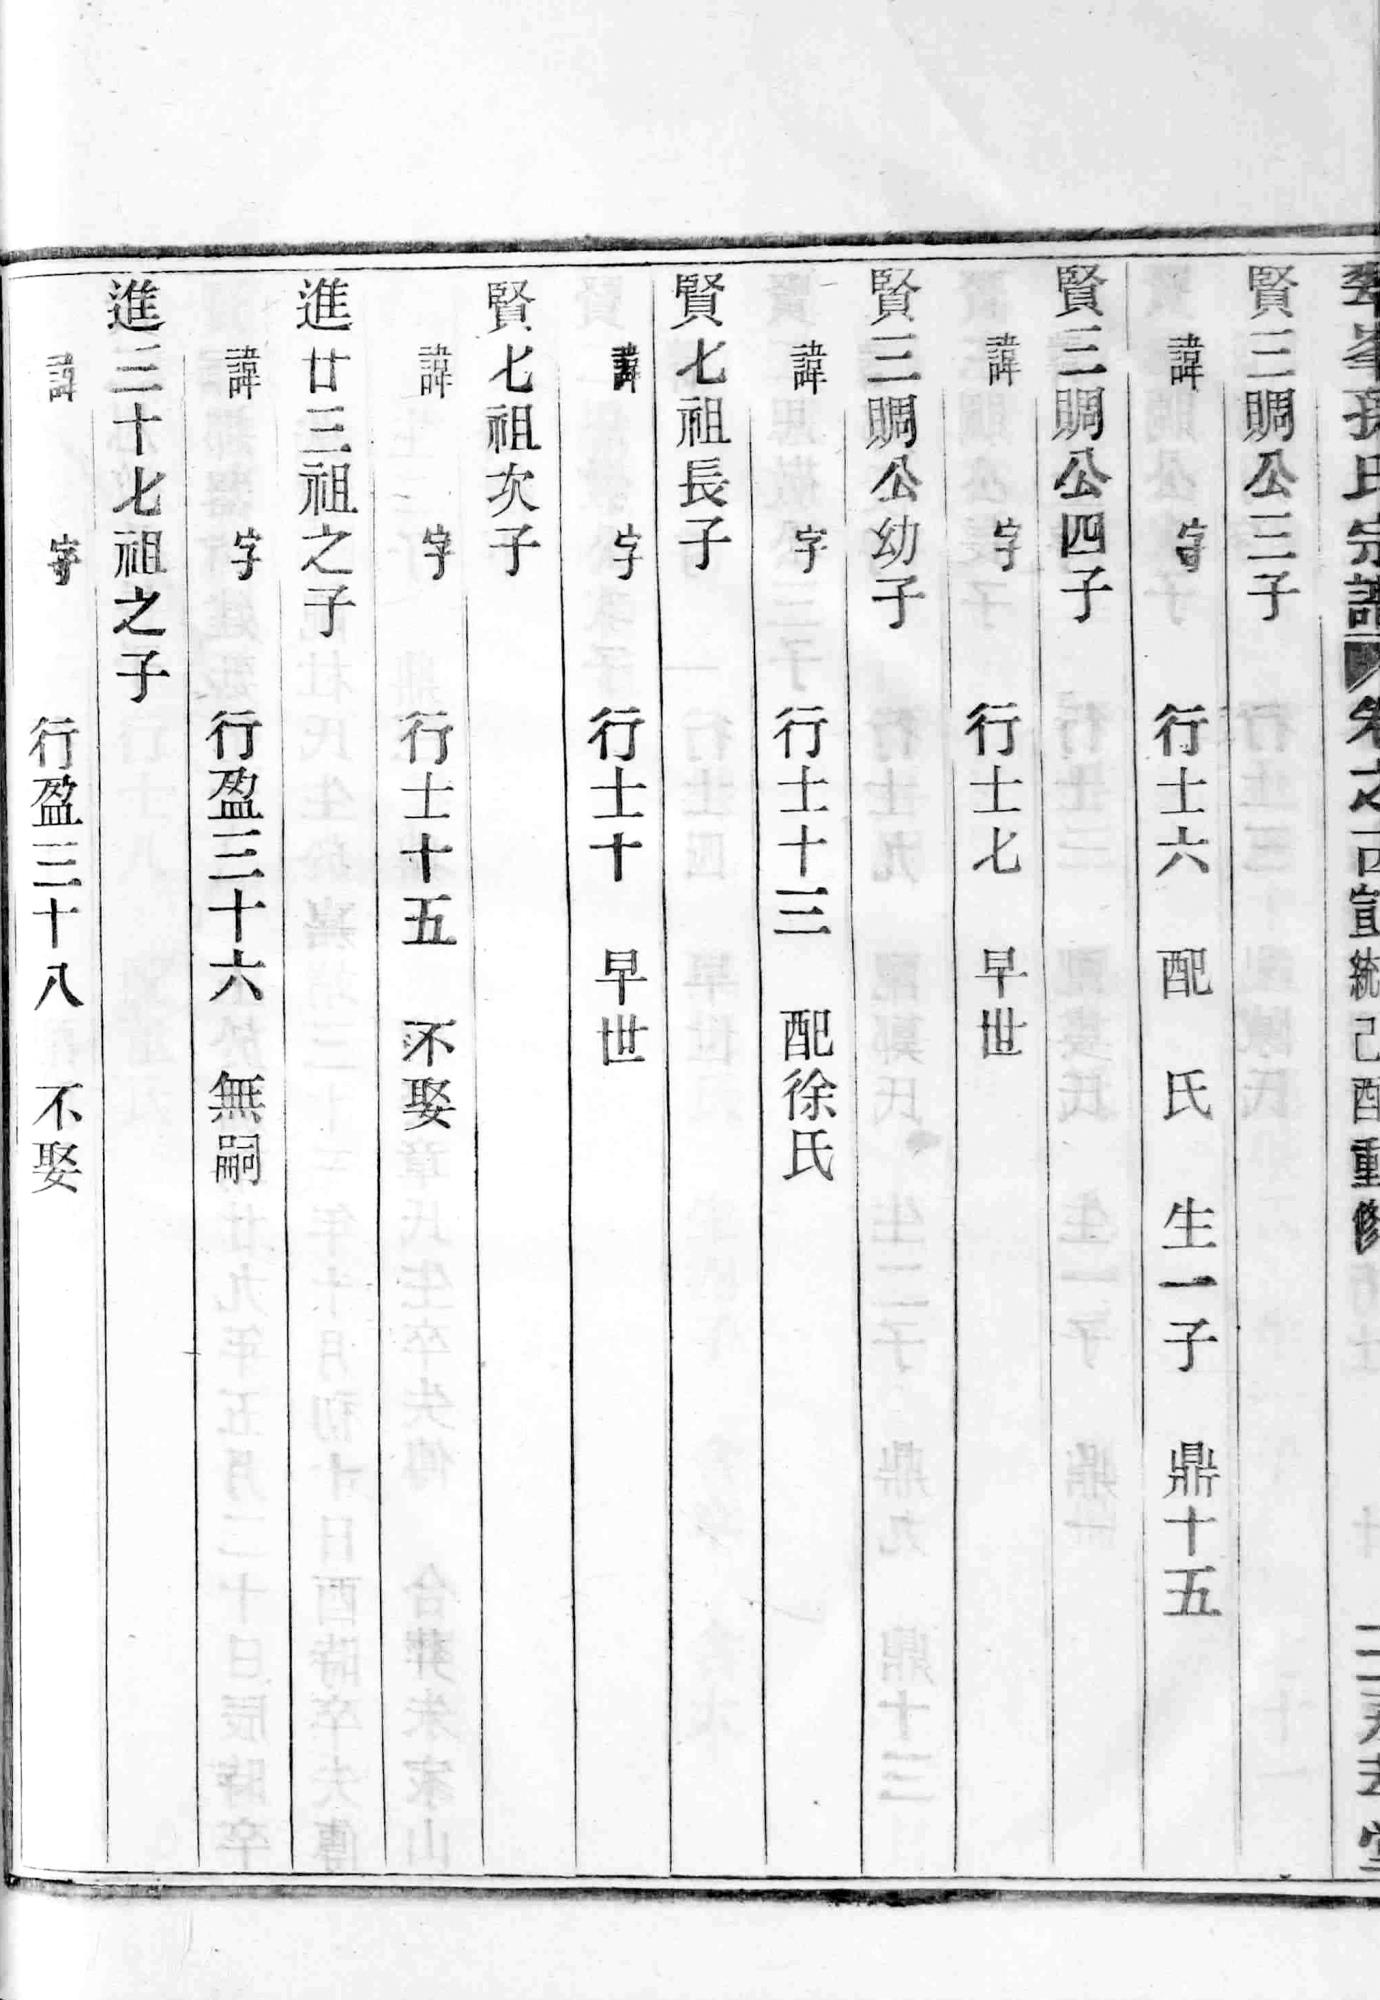 孫氏宗譜 卷之 宣統己酉重修
賢三賙公三子
諱 字 行士六 配 氏 生一子 鼎十五
賢三賙公四子
諱 字 行士七 早世
賢三賙公幼子
諱 字 行士十三 配徐氏
賢七祖長子
諱 字 行士十 早世
賢七祖次子
諱 字 行士十五 不娶
進廿三祖之子
諱 字 行盈三十六 無嗣
進三十七祖之子
諱 字 行盈三十八 不娶